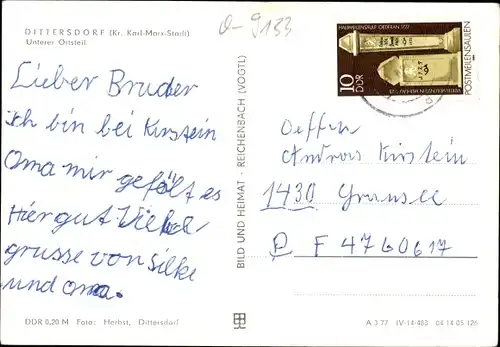 DITTERSDORF (Kr. Karl-Marx-Stadt)
Unterer Ortsteil
Lieber Bruder
Ich bin bei Kirstein
Oma mir gefällt es
Hier gut Viele
grusse von Silke
und Oma.
DDR 0,20 M Foto: Herbst, Dittersdorf
BILD UND HEIMAT · REICHENBACH (VOGTL)
0-9133
HALBMEILENSÄULE OEDERAN 1722
10 DDR
POSTMEILENSÄULEN
Oeffzn.
Andreas Kirstein
1430 Gransee
P F 4760617
A 3 77 IV-14-483 04 14 05 126